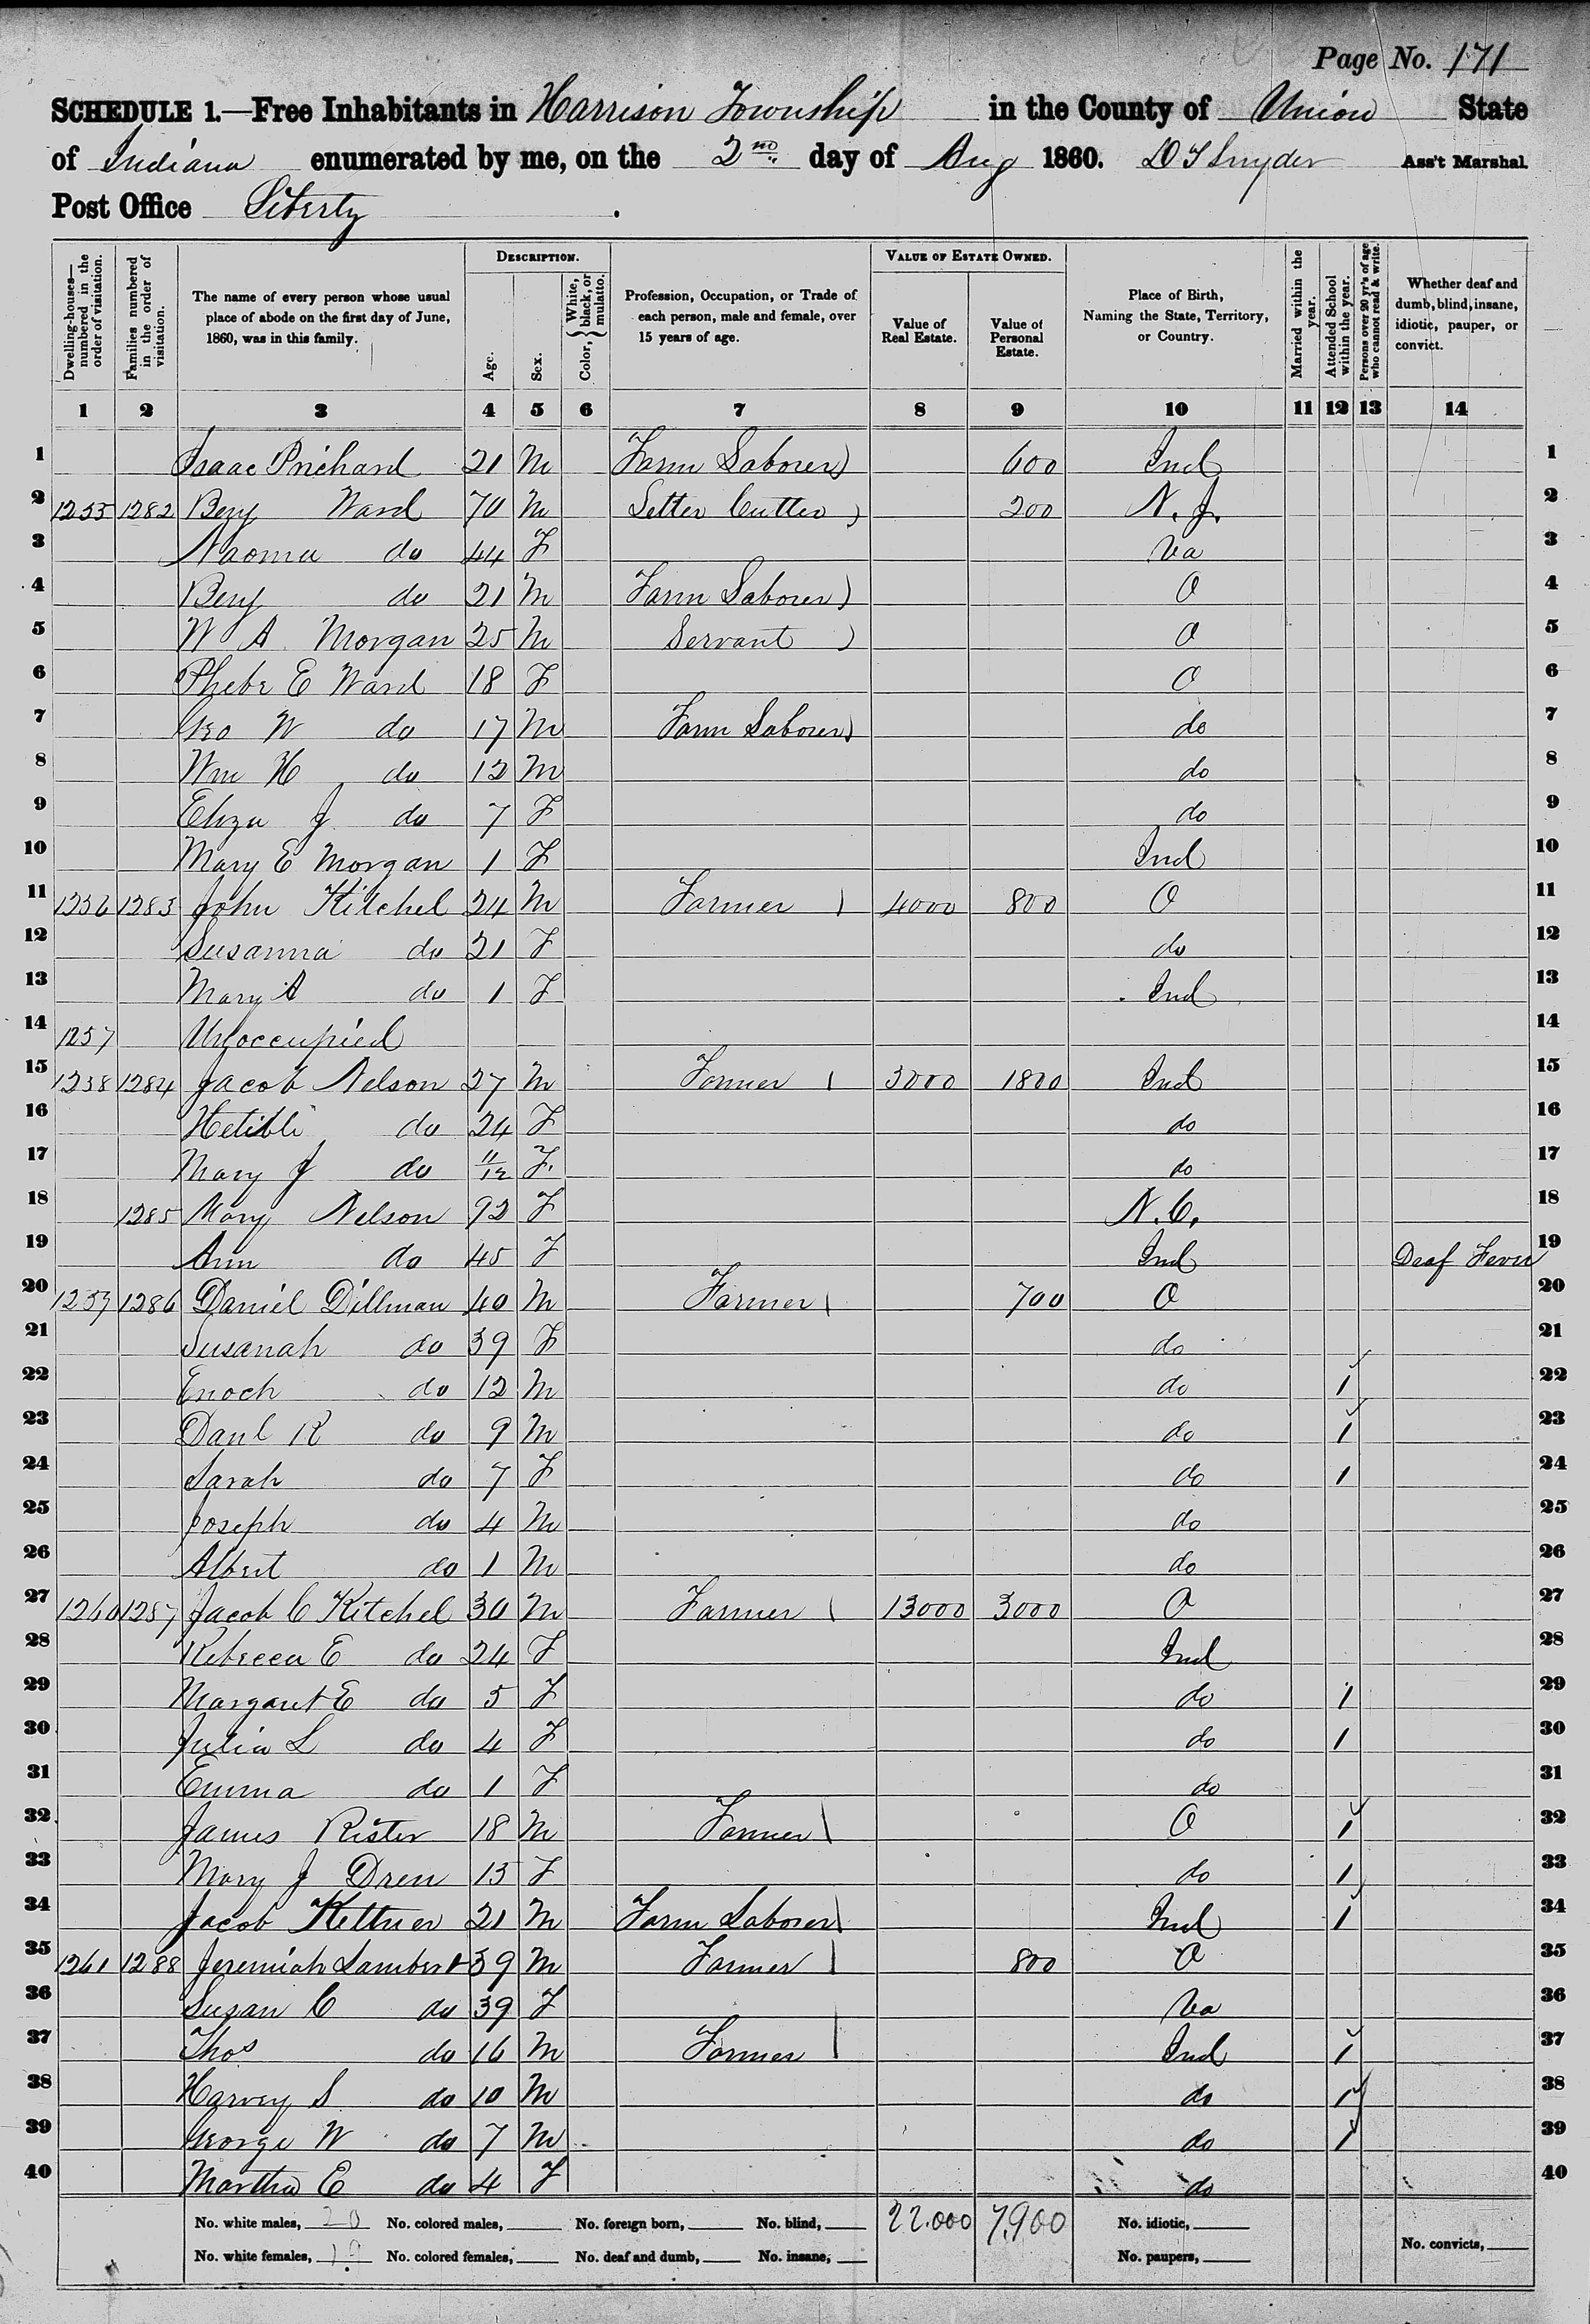 Page No. 171
SCHEDULE 1.—Free Inhabitants in Harrison Township in the County of Union State
of Indiana enumerated by me, on the 2nd day of Aug 1860. D T Snyder Ass't Marshal
Post Office Liberty
Dwelling-houses—numbered in the order of visitation.
Families numbered in the order of visitation.
The name of every person whose usual place of abode on the first day of June, 1860, was in this family.
DESCRIPTION.
Age.
Sex.
Color, { White, black, or mulatto.
Profession, Occupation, or Trade of each person, male and female, over 15 years of age.
VALUE OF ESTATE OWNED.
Value of Real Estate.
Value of Personal Estate.
Place of Birth, Naming the State, Territory, or Country.
Married within the year.
Attended School within the year.
Persons over 20 yr's of age who cannot read & write.
Whether deaf and dumb, blind, insane, idiotic, pauper, or convict.
1 2 3 4 5 6 7 8 9 10 11 12 13 14
1 Isaac Prichard 21 M Farm Laborer 600 Ind 1
2 1255 1282 Benj Ward 70 M Letter Cutter 200 N. J. 2
3 Naoma do 44 F Va 3
4 Benj do 21 M Farm Laborer O 4
5 W A Morgan 25 M Servant O 5
6 Phebe E Ward 18 F O 6
7 Geo W do 17 M Farm Laborer do 7
8 Wm H do 12 M do 8
9 Eliza J do 7 F do 9
10 Mary E Morgan 1 F Ind 10
11 1256 1283 John Kitchel 24 M Farmer 4000 800 O 11
12 Susanna do 21 F do 12
13 Mary A do 1 F Ind 13
14 1257 Unoccupied 14
15 1258 1284 Jacob Nelson 27 M Farmer 3000 1800 Ind 15
16 do 24 F do 16
17 Mary J do 11/12 F. do 17
18 1285 Mary Nelson 92 F N. C. 18
19 Ann do 45 F Ind Deaf Fever 19
20 1259 1286 Daniel Dillman 40 M Farmer 700 O 20
21 Susanah do 39 F do 21
22 Enoch do 12 M do 1 22
23 Danl R do 9 M do 1 23
24 Sarah do 7 F do 1 24
25 Joseph do 4 M do 25
26 Albert do 1 M do 26
27 1260 1287 Jacob C Kitchel 30 M Farmer 13000 3000 O 27
28 Rebecca E do 24 F Ind 28
29 Margaret E do 5 F do 1 29
30 Julia L do 4 F do 1 30
31 Emma do 1 F do 31
32 James Rister 18 M Farmer O 1 32
33 Mary J Dren 15 F do 1 33
34 Jacob Keltner 21 M Farm Laborer Ind 1 34
35 1261 1288 Jeremiah Lambert 39 M Farmer 800 O 35
36 Susan C do 39 F Va 36
37 Thos do 16 M Farmer Ind 1 37
38 Harvey S do 10 M do 1 38
39 George W do 7 M do 1 39
40 Martha E do 4 F do 40
No. white males, 20 No. colored males, No. foreign born, No. blind, 22.000 7,900 No. idiotic,
No. white females, 19 No. colored females, No. deaf and dumb, No. insane, No. paupers, No. convicts,